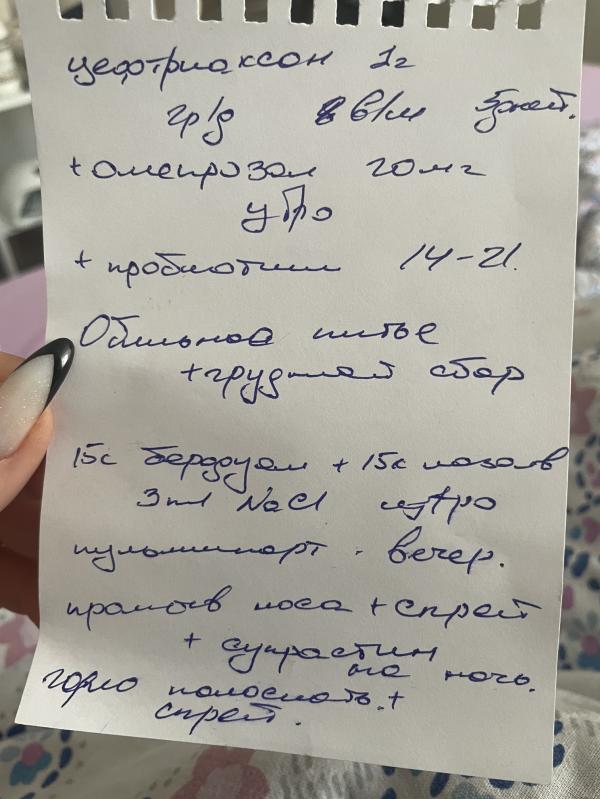 цефтриаксон 1г
2р/д в/м 5 дней.
+ омепрозол 20мг
утро
+ пробиотики 14-21.
Обильное питье
+ грудной сбор
15к беродуал + 15к
3ml NaCl утро
пульмикорт . вечер.
промыв носа + спрей
+ супрастин
на ночь.
горло полоскать. +
спрей.